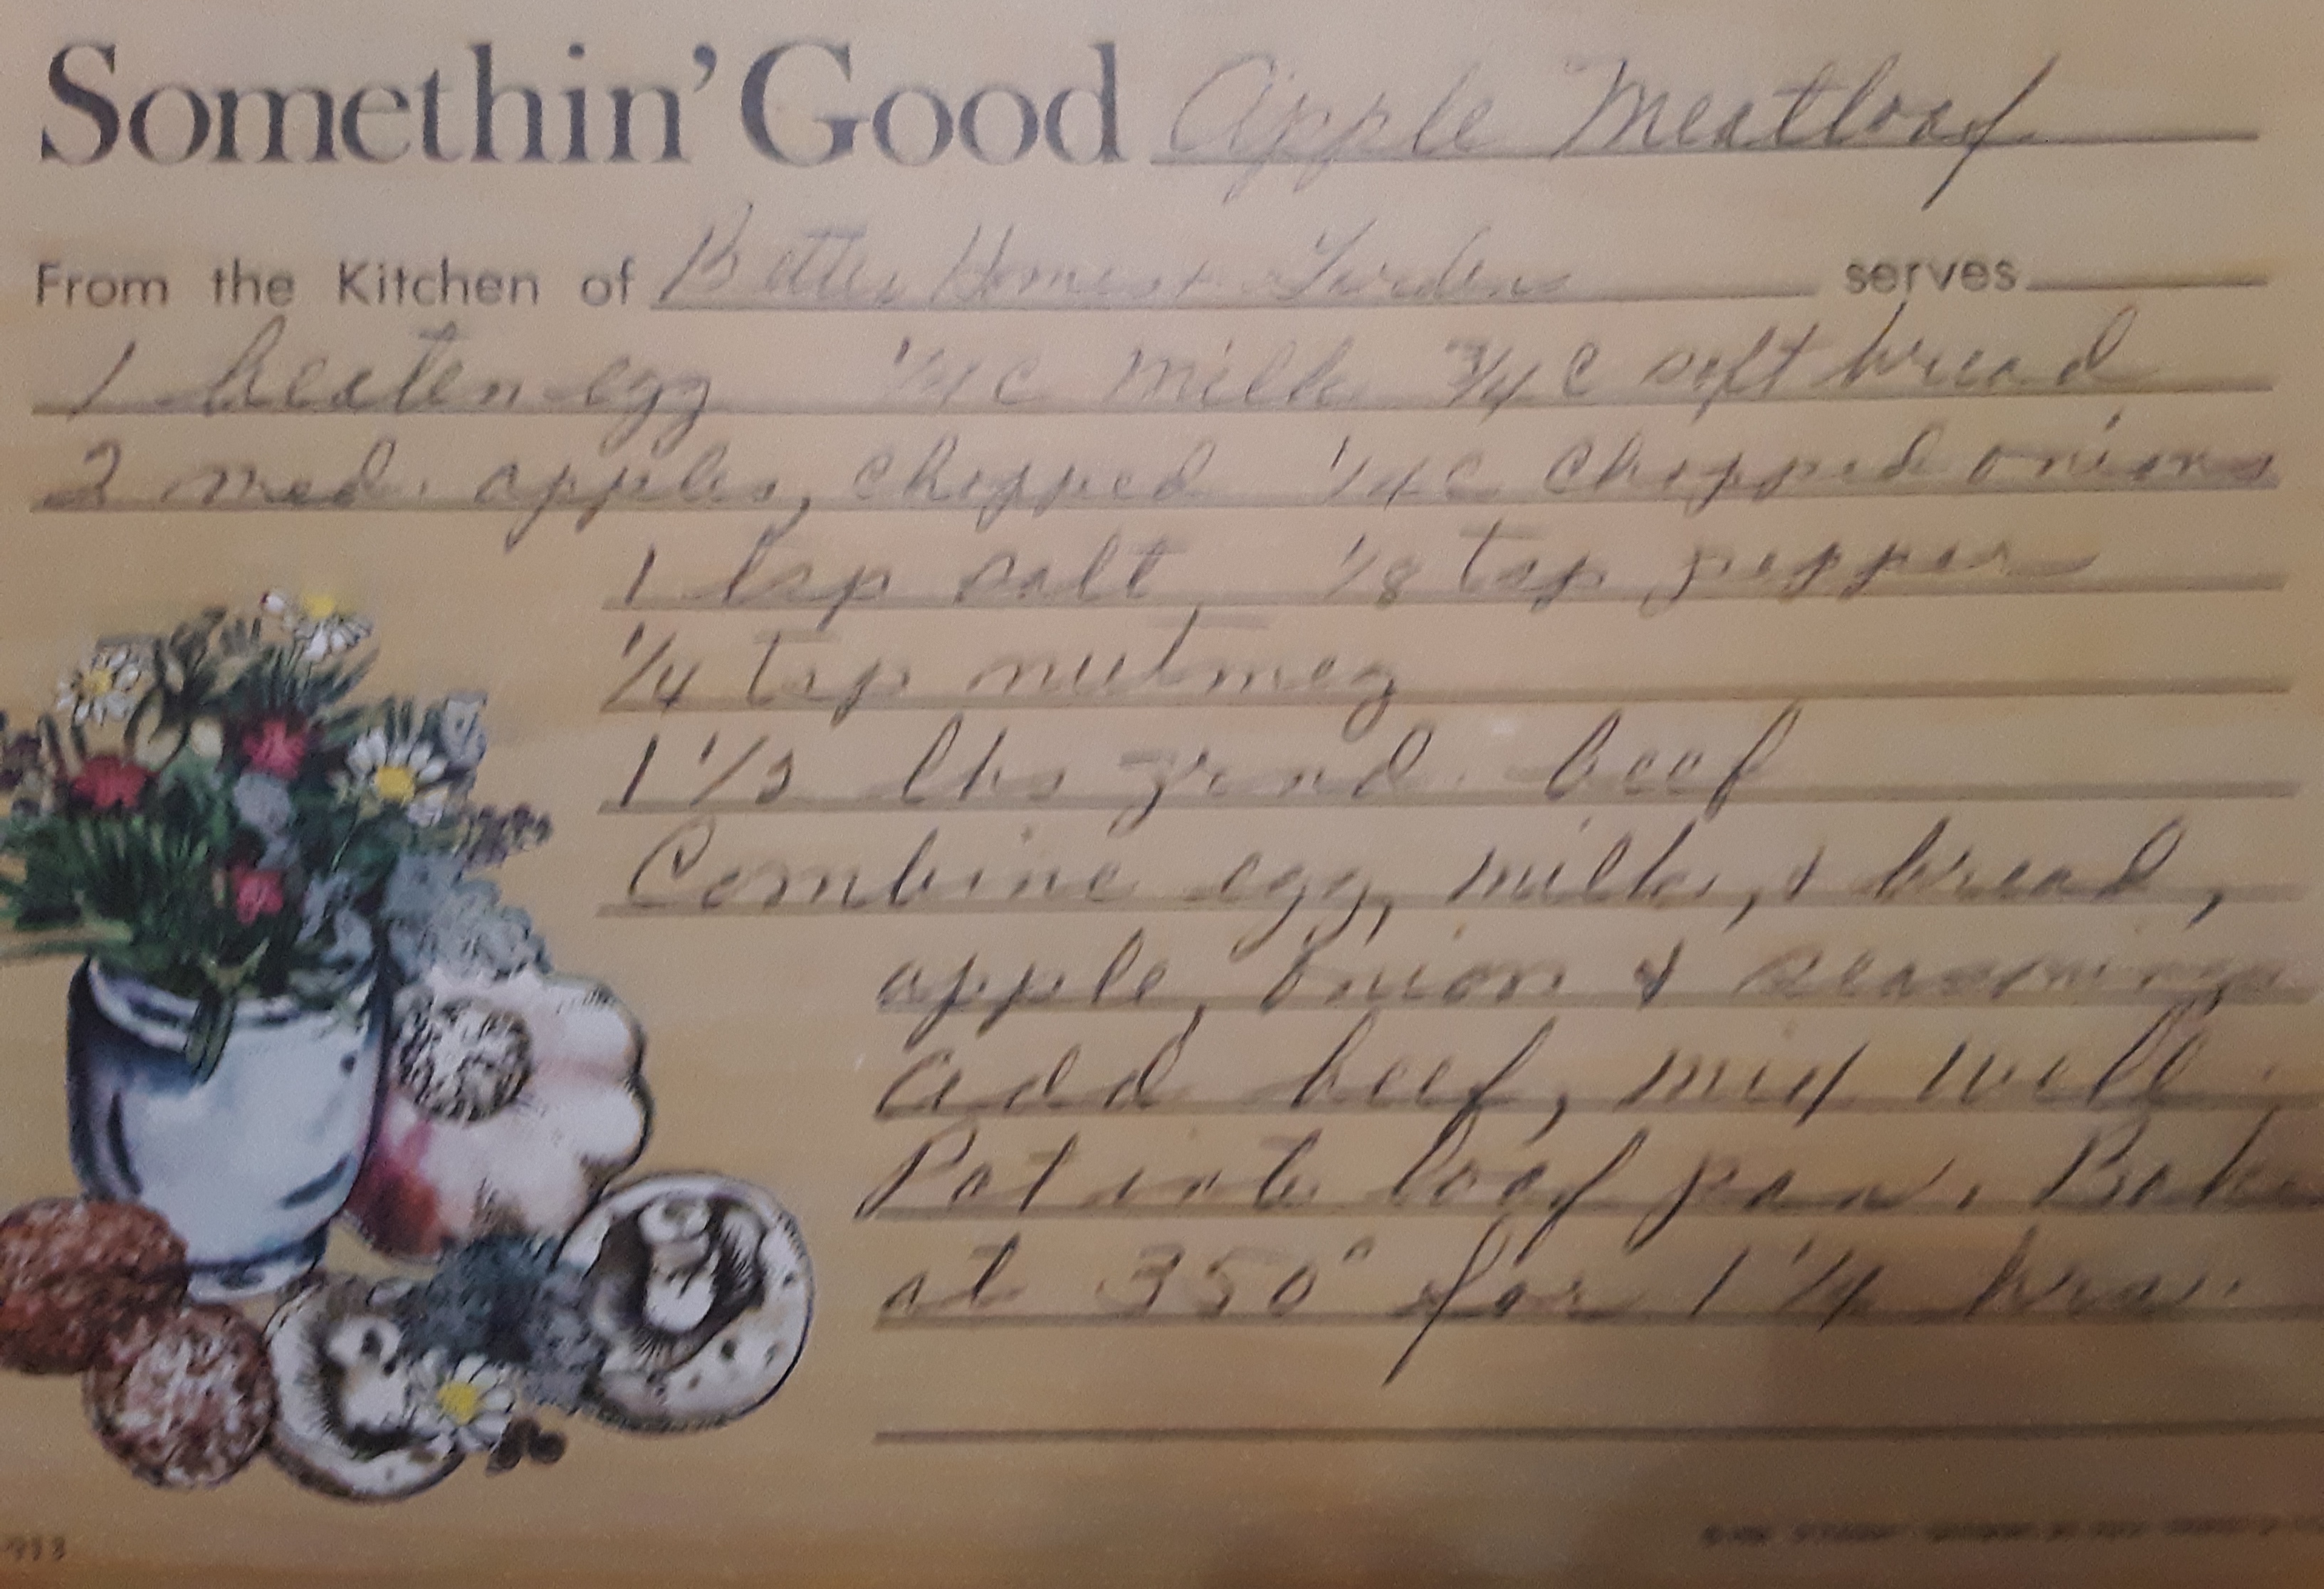 Somethin' Good Apple Meatloaf
From the Kitchen of Better Homes + Gardens serves
1 beaten egg 1/4 c milk 3/4 c soft bread
2 med. apples, chopped 1/4 c chopped onions
1 tsp salt, 1/8 tsp pepper
1/4 tsp nutmeg
1 1/2 lbs grnd. beef
Combine egg, milk, & bread,
apple, onion & seasonings
add beef, mix well.
Pat into loaf pan. Bake
at 350° for 1 1/4 hrs.